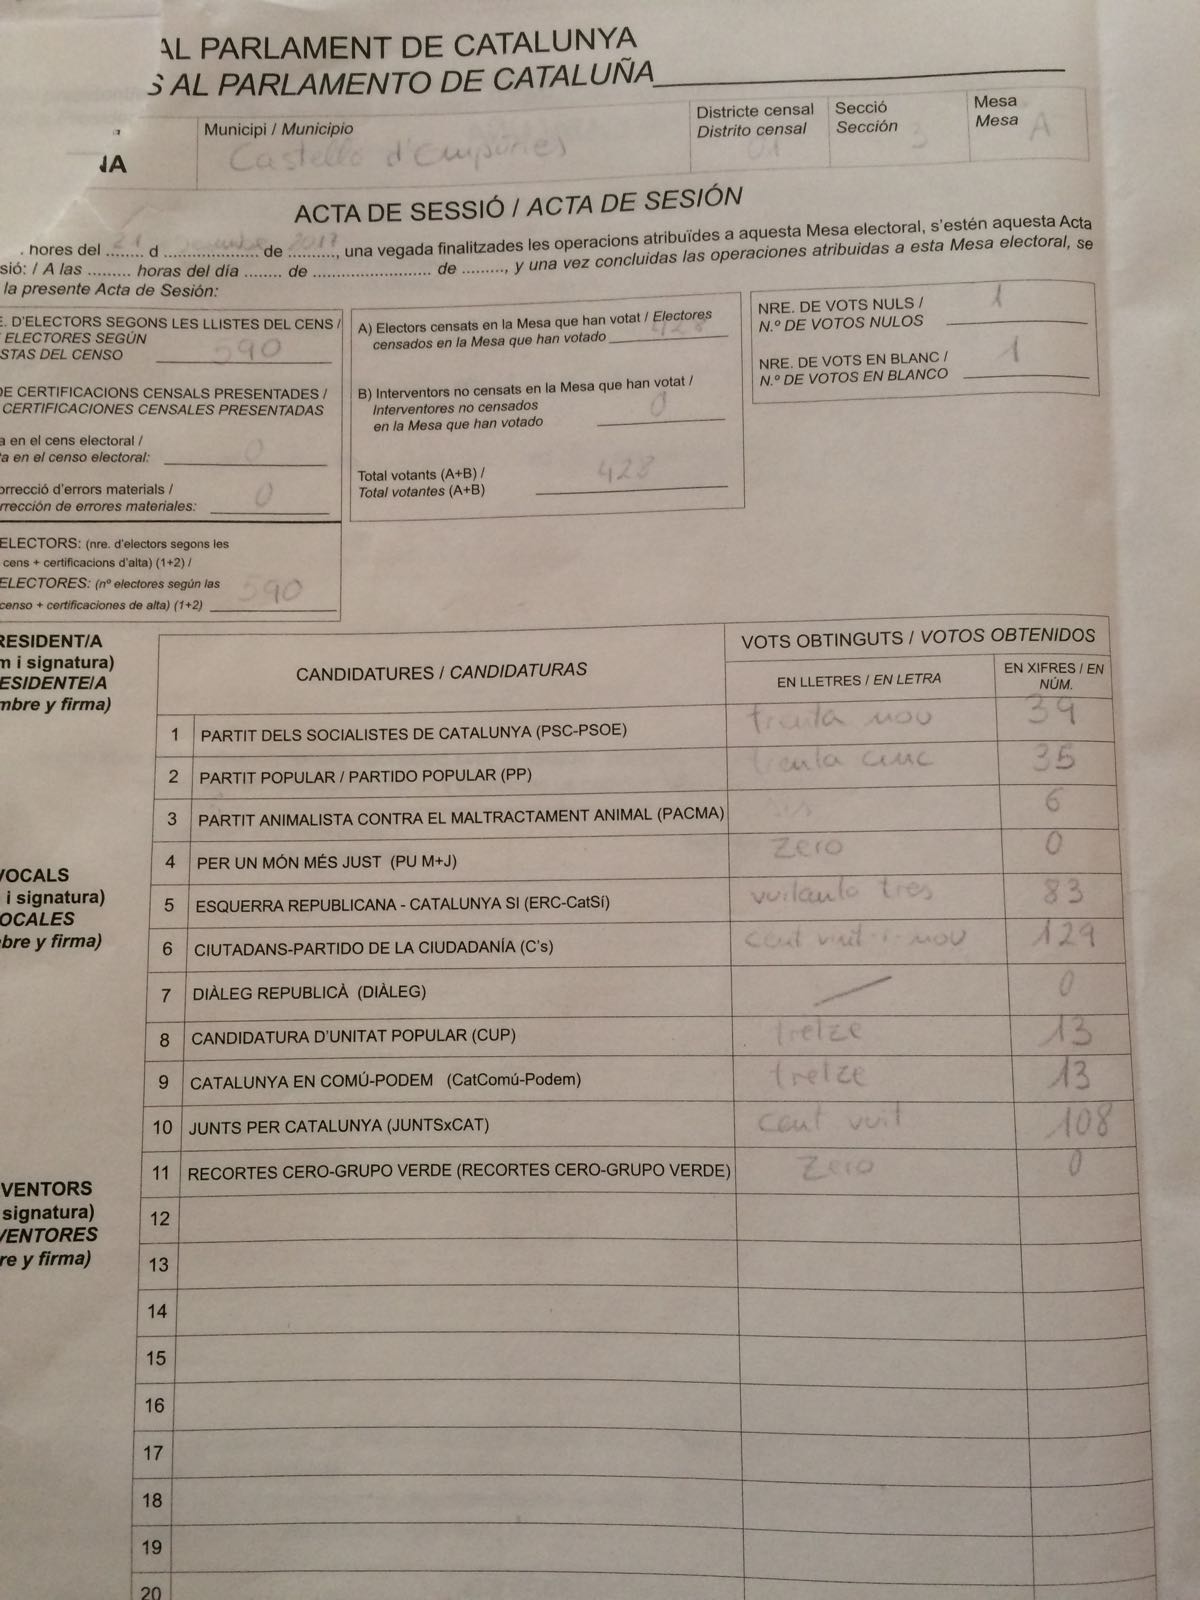 AL PARLAMENT DE CATALUNYA
S AL PARLAMENTO DE CATALUÑA
NA
Municipi / Municipio
Castelló d'Empúries
Districte censal
Distrito censal
01
Secció
Sección
3
Mesa
Mesa
A
ACTA DE SESSIÓ / ACTA DE SESIÓN
hores del 21 d de 2017, una vegada finalitzades les operacions atribuïdes a aquesta Mesa electoral, s'estén aquesta Acta
sió: / A las ......... horas del día ........ de ......................... de ........., y una vez concluidas las operaciones atribuidas a esta Mesa electoral, se
la presente Acta de Sesión:
E. D'ELECTORS SEGONS LES LLISTES DEL CENS /
ELECTORES SEGÚN
STAS DEL CENSO 590
DE CERTIFICACIONS CENSALS PRESENTADES /
CERTIFICACIONES CENSALES PRESENTADAS
a en el cens electoral /
ta en el censo electoral: 0
orrecció d'errors materials /
rrección de errores materiales: 0
ELECTORS: (nre. d'electors segons les
cens + certificacions d'alta) (1+2) /
ELECTORES: (nº electores según las
censo + certificaciones de alta) (1+2) 590
A) Electors censats en la Mesa que han votat / Electores
censados en la Mesa que han votado 428
B) Interventors no censats en la Mesa que han votat /
Interventores no censados
en la Mesa que han votado 0
Total votants (A+B) /
Total votantes (A+B) 428
NRE. DE VOTS NULS /
N.º DE VOTOS NULOS 1
NRE. DE VOTS EN BLANC /
N.º DE VOTOS EN BLANCO 1
RESIDENT/A
m i signatura)
ESIDENTE/A
mbre y firma)
VOCALS
i signatura)
OCALES
bre y firma)
VENTORS
signatura)
VENTORES
re y firma)
CANDIDATURES / CANDIDATURAS
VOTS OBTINGUTS / VOTOS OBTENIDOS
EN LLETRES / EN LETRA
EN XIFRES / EN
NÚM.
1 PARTIT DELS SOCIALISTES DE CATALUNYA (PSC-PSOE) trenta nou 39
2 PARTIT POPULAR / PARTIDO POPULAR (PP) trenta cinc 35
3 PARTIT ANIMALISTA CONTRA EL MALTRACTAMENT ANIMAL (PACMA) sis 6
4 PER UN MÓN MÉS JUST (PU M+J) zero 0
5 ESQUERRA REPUBLICANA - CATALUNYA SI (ERC-CatSí) vuitanta tres 83
6 CIUTADANS-PARTIDO DE LA CIUDADANÍA (C's) cent vint-i-nou 129
7 DIÀLEG REPUBLICÀ (DIÀLEG) 0
8 CANDIDATURA D'UNITAT POPULAR (CUP) tretze 13
9 CATALUNYA EN COMÚ-PODEM (CatComú-Podem) tretze 13
10 JUNTS PER CATALUNYA (JUNTSxCAT) cent vuit 108
11 RECORTES CERO-GRUPO VERDE (RECORTES CERO-GRUPO VERDE) zero 0
12
13
14
15
16
17
18
19
20